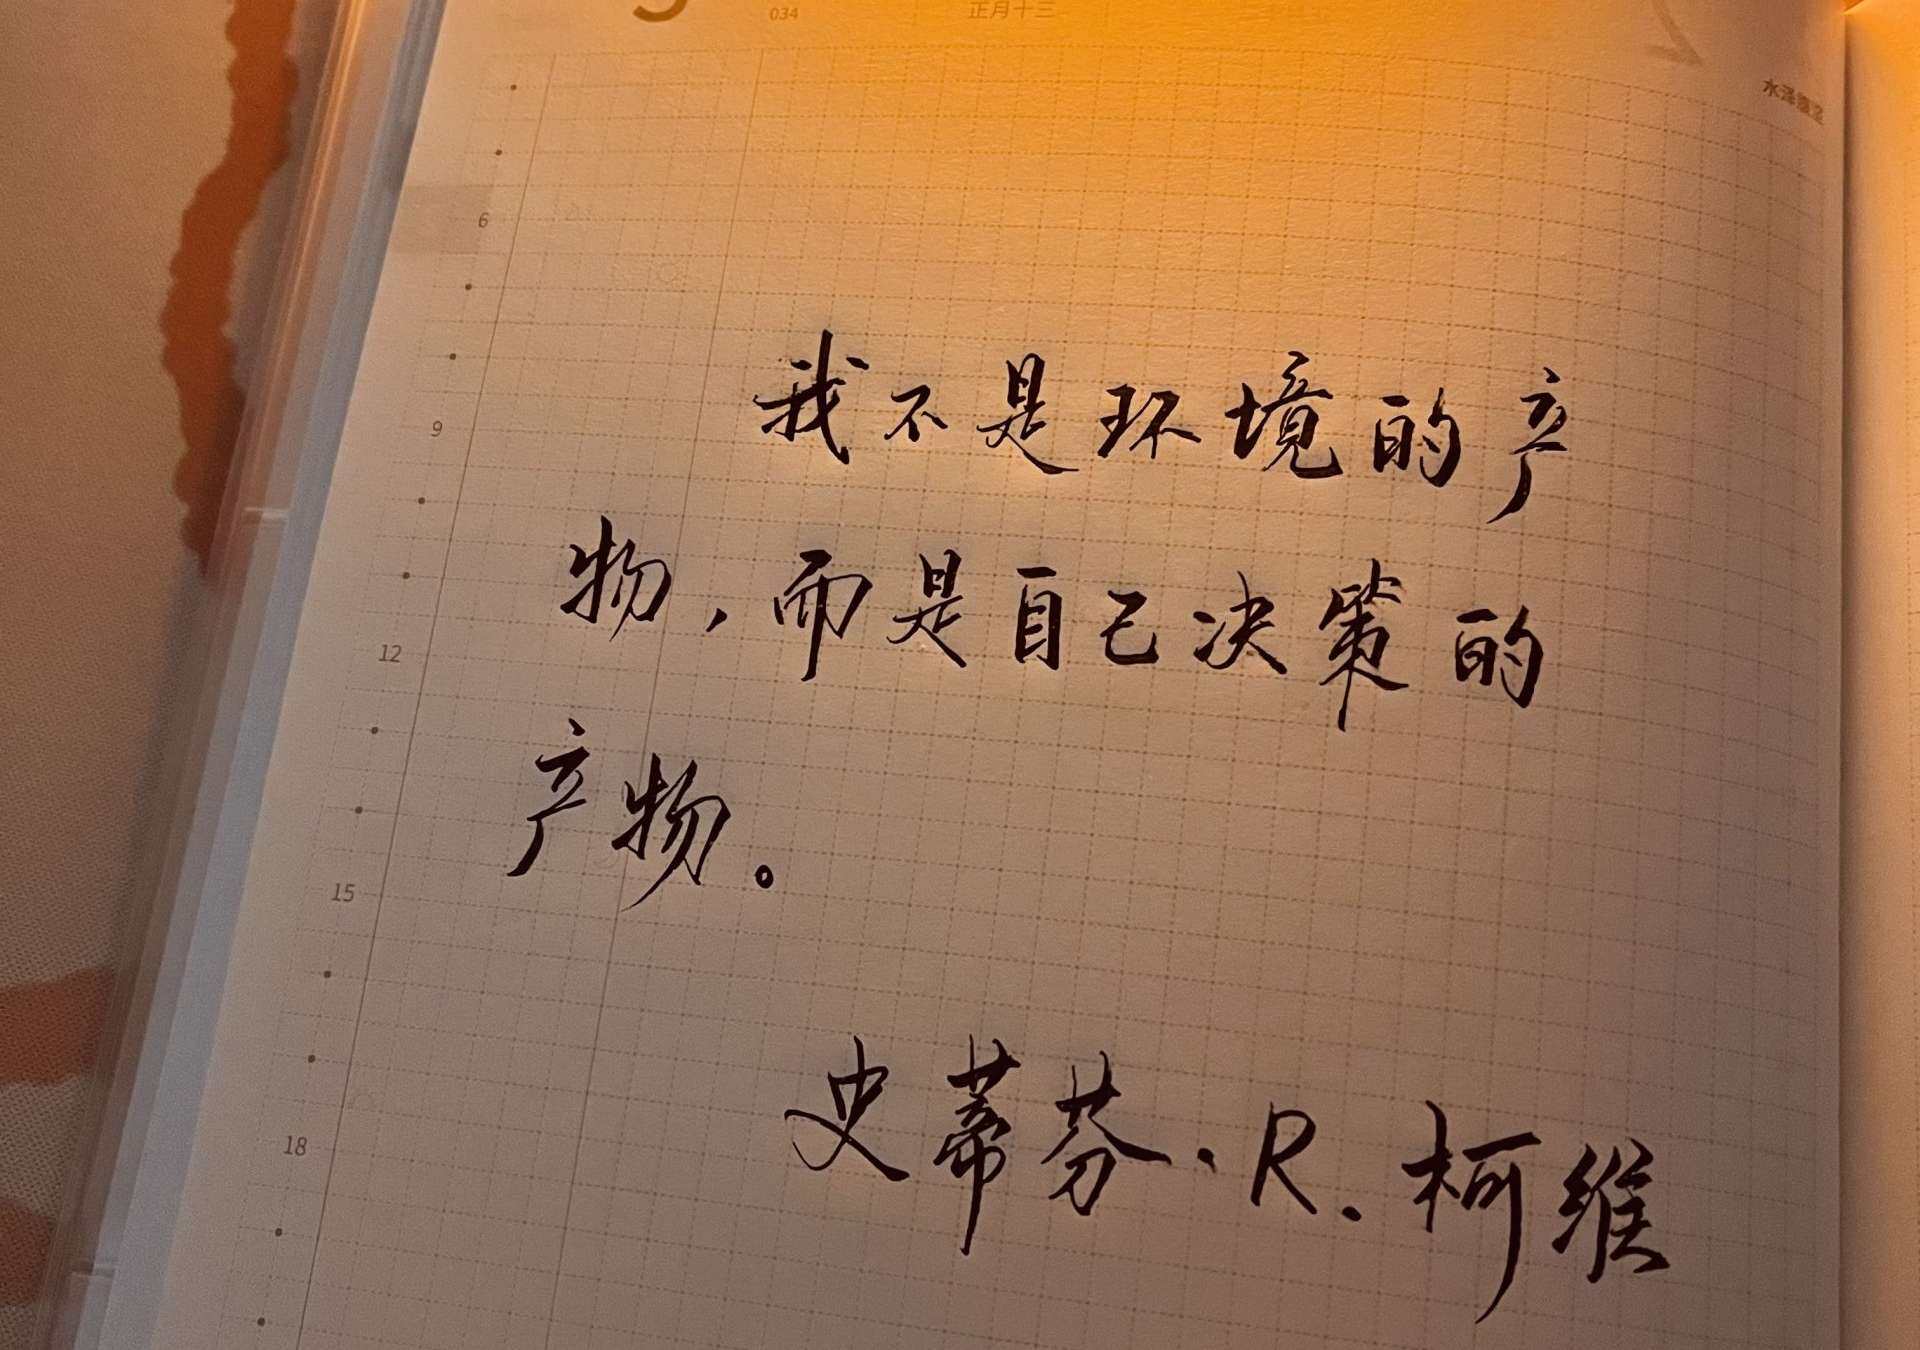 034 正月十三
水泽腹坚
6
9
12
15
18
我不是环境的产
物，而是自己决策的
产物。
史蒂芬·R.柯维